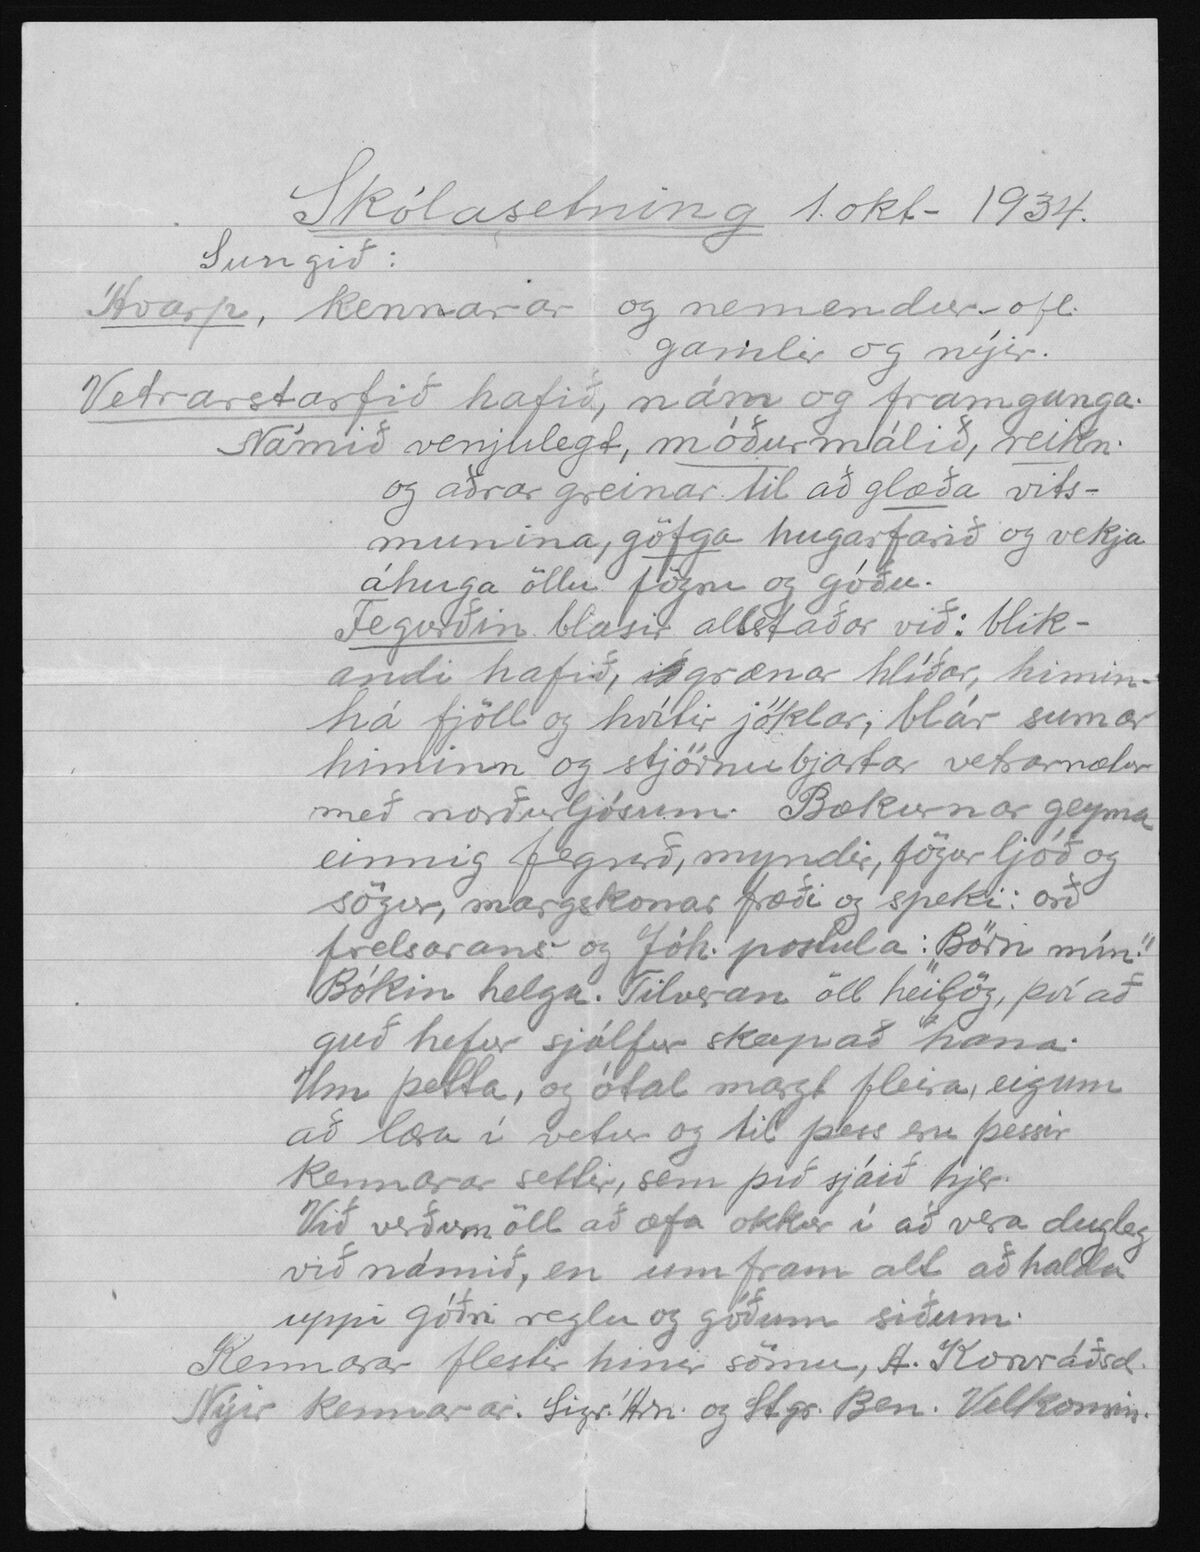 Skólasetning 1. okt - 1934.
Sungið:
Ávarp, kennarar og nemendur - ofl.
gamlir og nýir.
Vetrarstarfið hafið, nám og framganga.
Námið venjulegt, móðurmálið, reikn.
og aðrar greinar til að glæða vits-
munina, göfga hugarfarið og vekja
áhuga öllu fögru og góðu.
Fegurðin blasir allstaðar við: blik-
andi hafið, grænar hlíðar, himin-
há fjöll og hvítir jöklar, blár sumar
himinn og stjörnubjartar vetrarnætur
með norðurljósum. Bækurnar geyma
einnig fegurð, myndir, fögur ljóð og
sögur, margskonar fræði og speki: orð
frelsarans og Jóh. postula: "Börn mín."
Bókin helga. Tilveran öll heilög, því að
guð hefur sjálfur skapað hana.
Um þetta, og ótal margt fleira, eigum
að læra í vetur og til þess eru þessir
kennarar settir, sem þið sjáið hjer.
Við verðum öll að æfa okkur í að vera dugleg
við námið, en um fram alt að halda
uppi góðri reglu og góðum siðum.
Kennarar flestir hinir sömu, A. Konráðsd.
Nýir kennarar. Sigr. Árn. og Stgr. Ben. Velkomin.